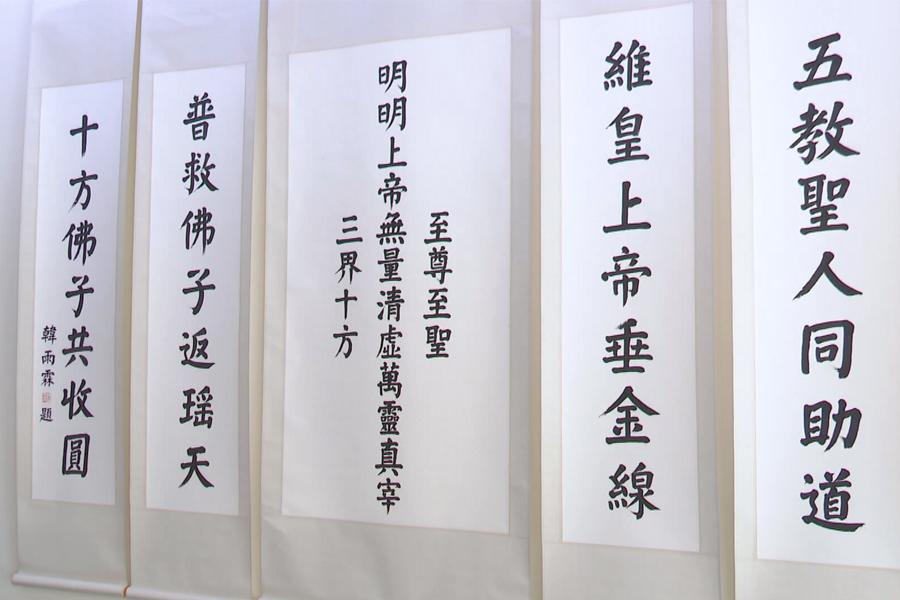 五教聖人同助道
維皇上帝垂金線
至尊至聖
明明上帝無量清虛萬靈真宰
三界十方
普救佛子返瑤天
十方佛子共收圓
韓雨霖題